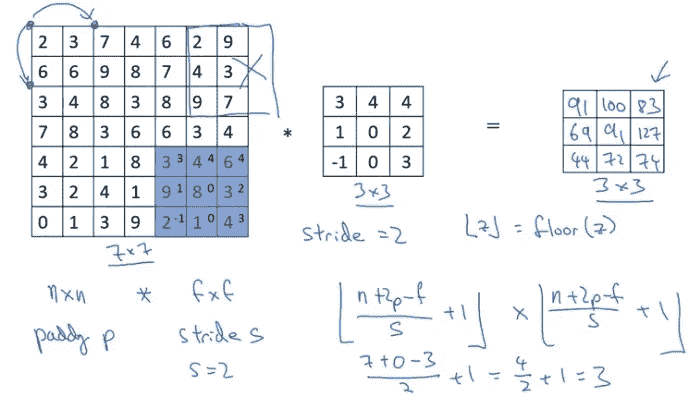 2 3 7 4 6 2 9
6 6 9 8 7 4 3
3 4 8 3 8 9 7
7 8 3 6 6 3 4
4 2 1 8 3 3 4 4 6 4
3 2 4 1 9 1 8 0 3 2
0 1 3 9 2 -1 1 0 4 3
7×7
*
3 4 4
1 0 2
-1 0 3
3×3
stride = 2
=
91 100 83
69 91 127
44 72 74
3×3
⌊z⌋ = floor(z)
n×n * f×f
paddy p stride s
s=2
⌊(n+2p-f)/s + 1⌋ × ⌊(n+2p-f)/s + 1⌋
(7+0-3)/2 + 1 = 4/2 + 1 = 3